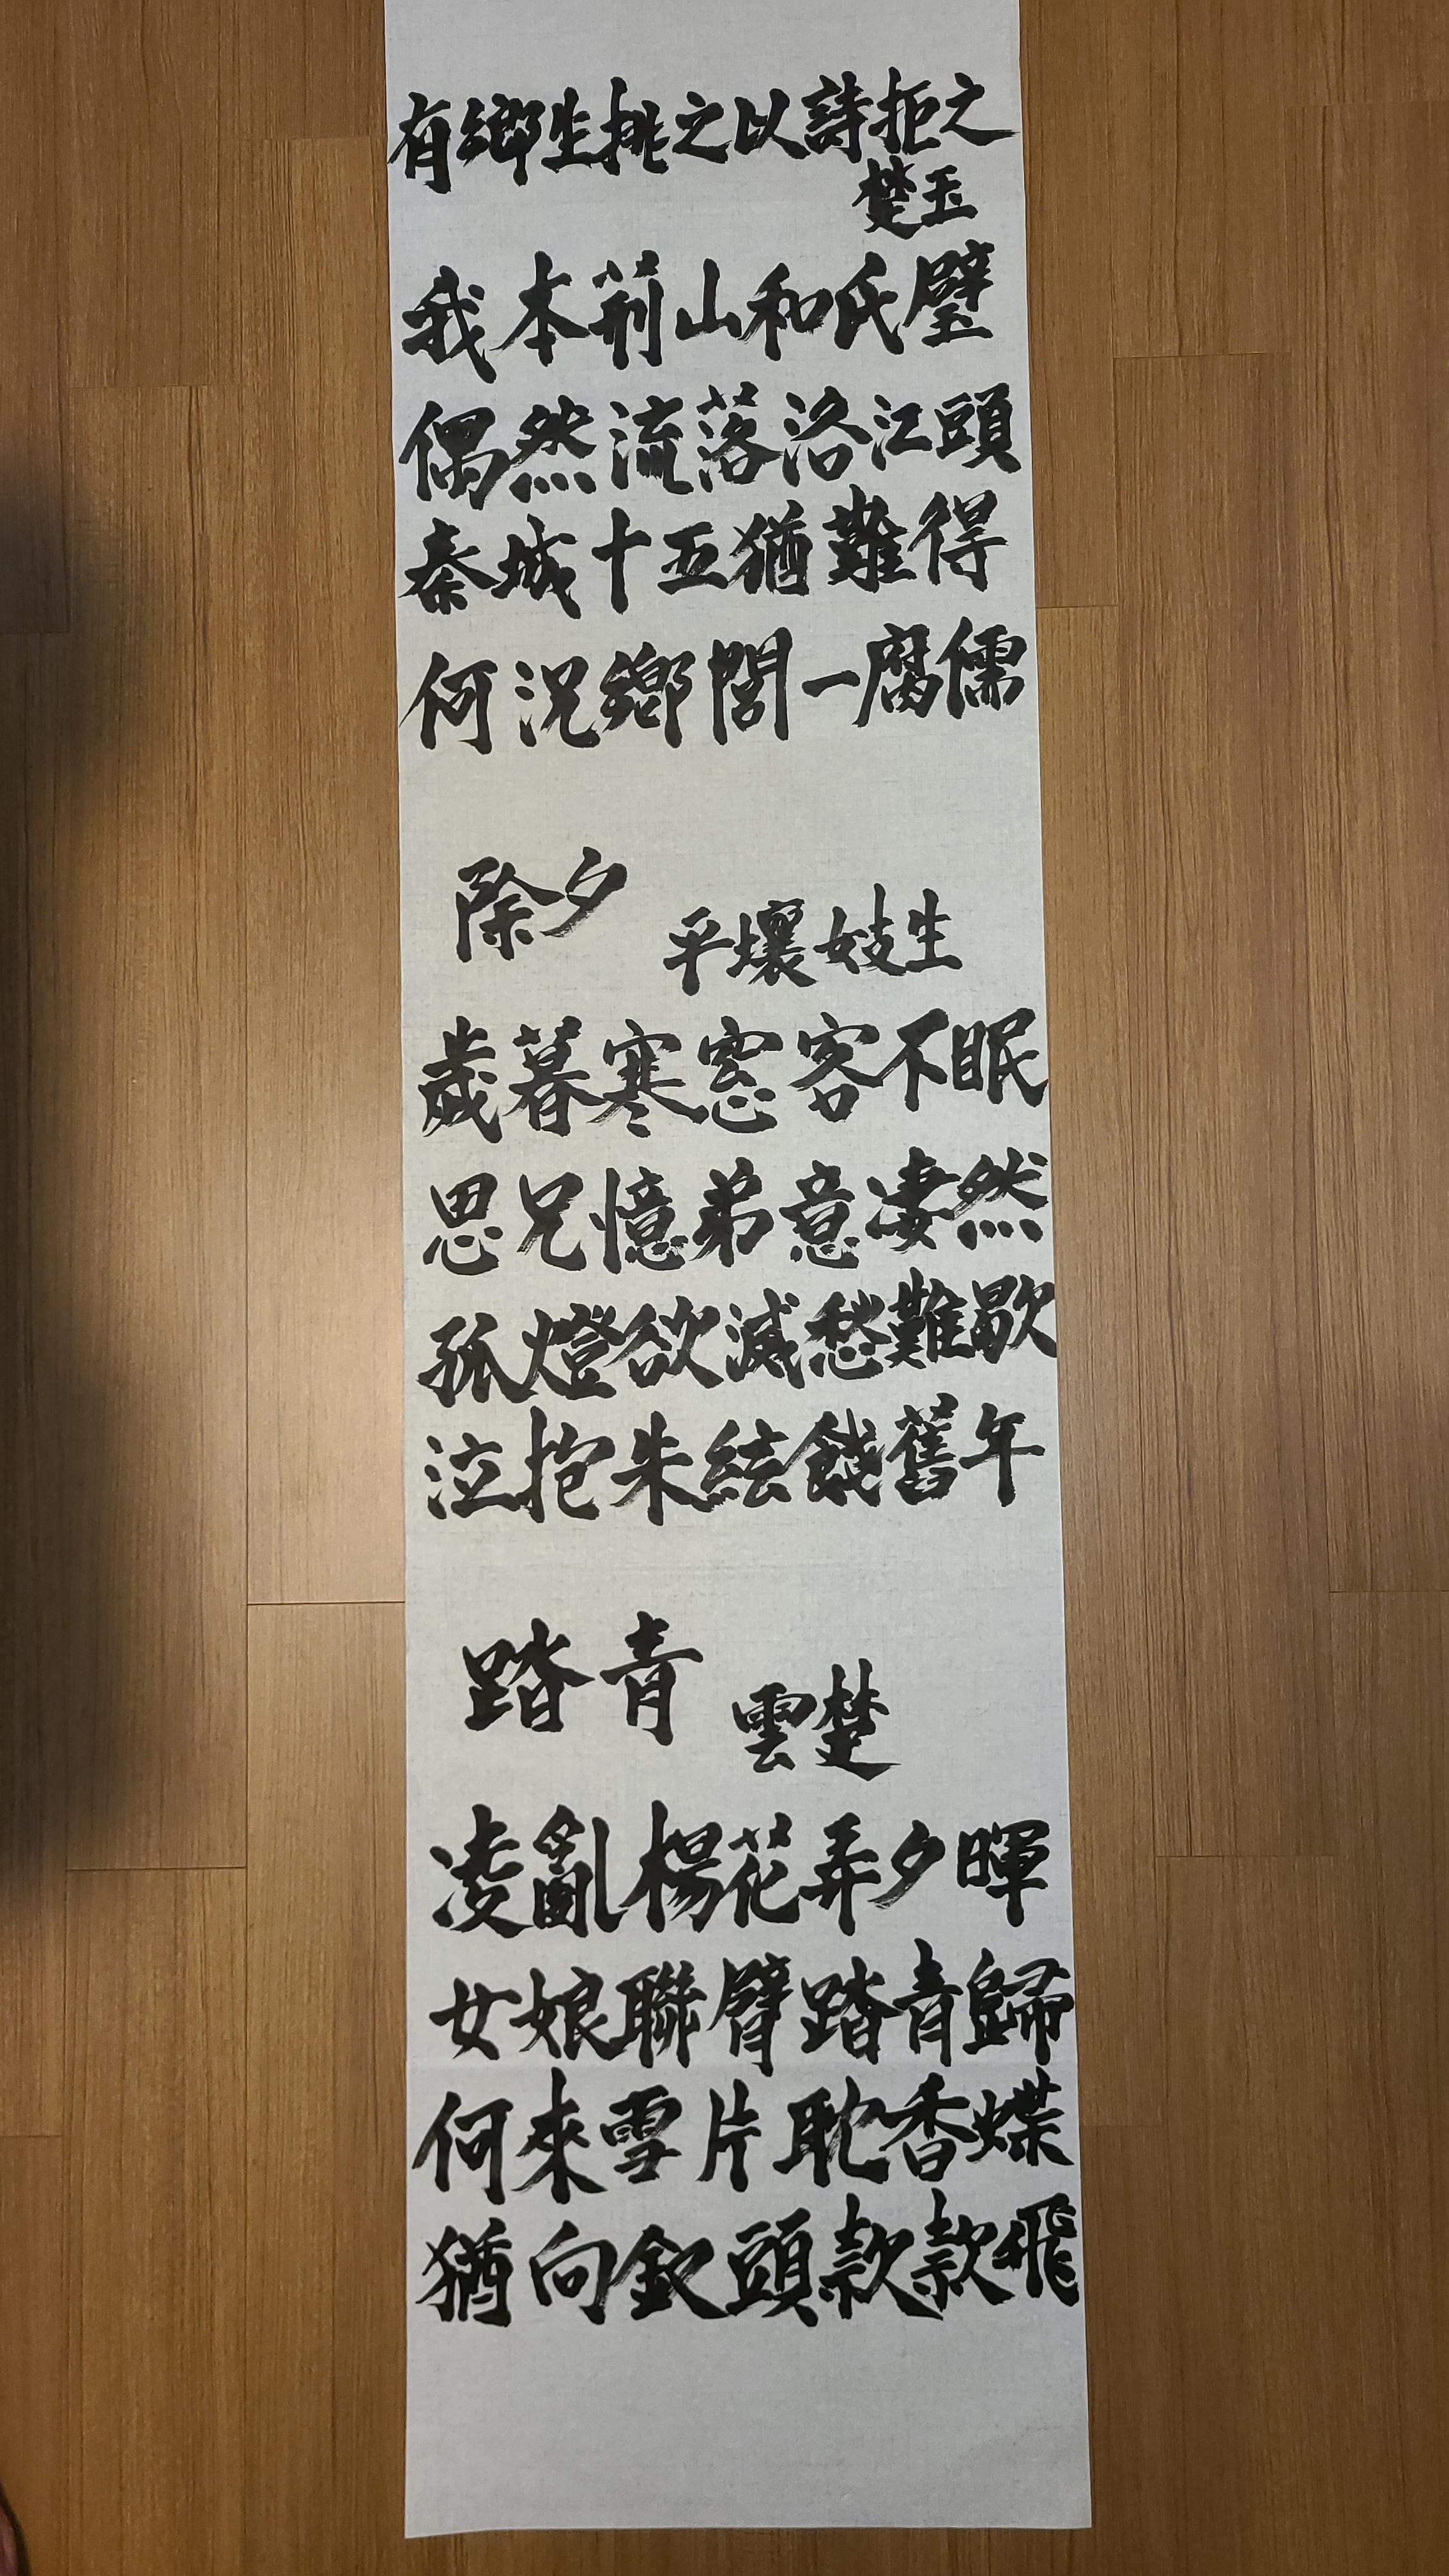 有鄕生挑之以詩拒之
楚玉
我本荊山和氏璧
偶然流落洛江頭
秦城十五猶難得
何況鄕閭一腐儒
除夕
平壤妓生
歲暮寒窓客不眠
思兄憶弟意凄然
孤燈欲滅愁難歇
泣抱朱絃餞舊年
踏靑
雲楚
凌亂楊花弄夕暉
女娘聯臂踏靑歸
何來雪片耽香蝶
猶向釵頭款款飛